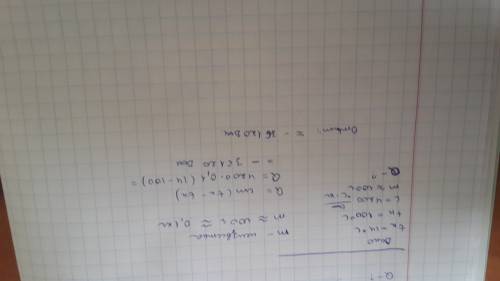 Q - ?
Дано
tк = 14°C
tн = 100°C
c = 4200 Дж/°C·кг
m ≈ 100 г
Q - ?
m - неизвестна
m ≈ 100 г ≈ 0,1 кг
Q = cm (tк - tн)
Q = 4200 · 0,1 (14 - 100) =
= - 36120 Дж
Ответ: ≈ - 36120 Дж